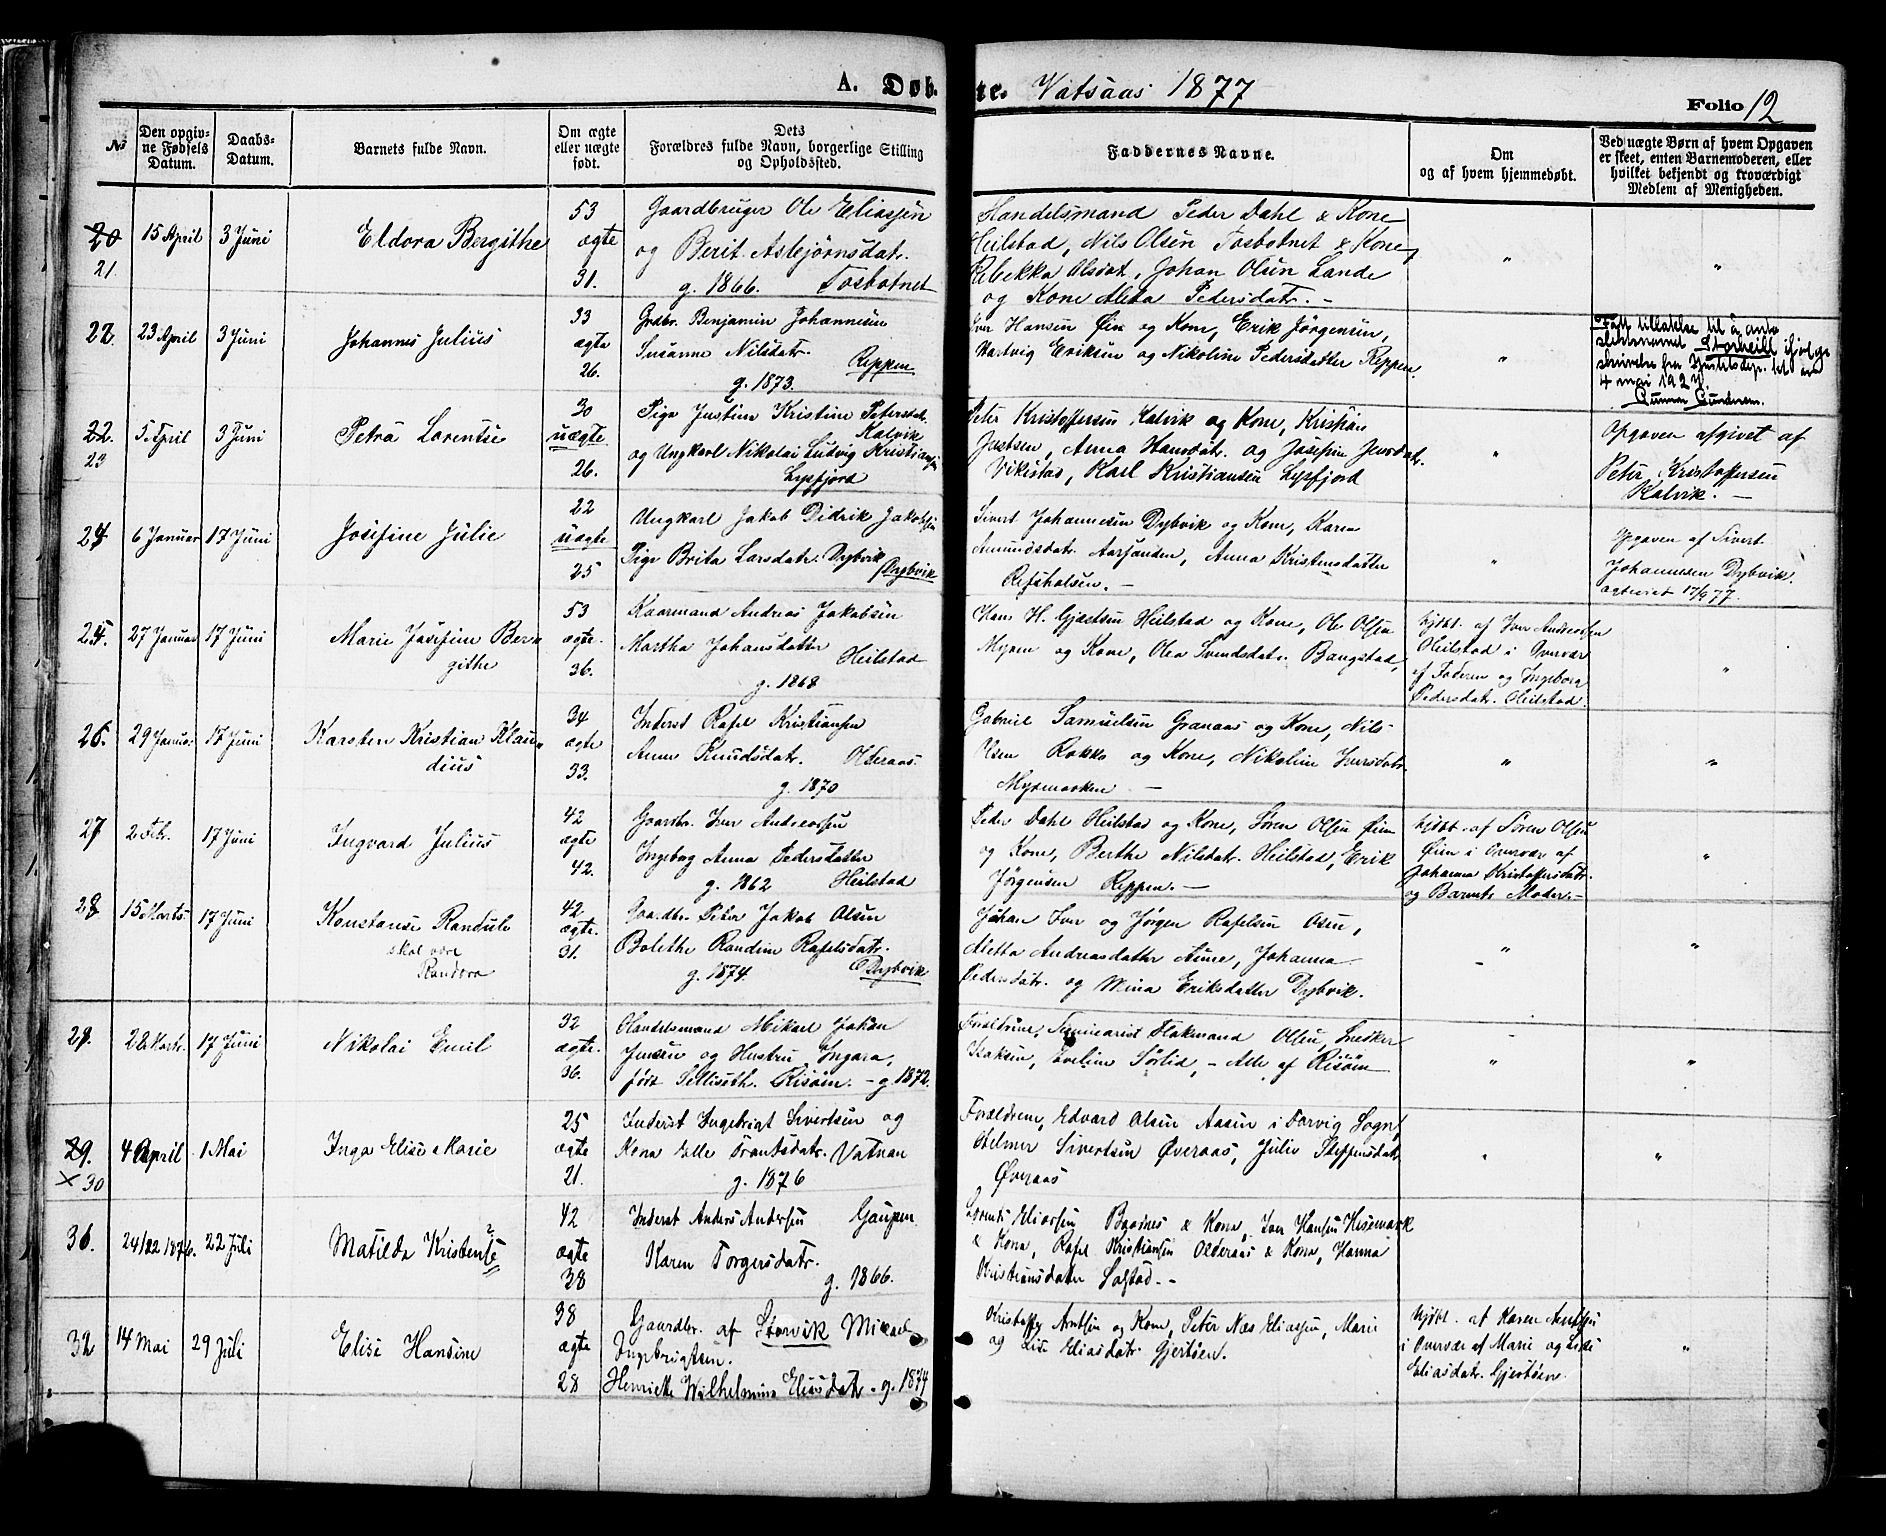 A. Døb- te. Vatsaas 1877
Folio 12
№
Den opgiv-
ne Fødsels
Datum.
Daabs-
Datum.
Barnets fulde Navn.
Om ægte
eller uægte
født.
Dets
Forældres fulde Navn, borgerlige Stilling
og Opholdssted.
Faddernes Navne.
Om
og af hvem hjemmedøbt.
Ved uægte Børn af hvem Opgaven
er skeet, enten Barnemoderen, eller
hvilket bekjendt og troværdigt
Medlem af Menigheden.
20
21.
15 April
3 Juni
Eldora Bergithe
53
ægte
31.
Gaardbruger Ole Eliassen
og Berit Asbjørnsdatr.
g. 1866. Tosbotnet
Handelsmand Peder Dahl & Kone
Heilstad, Nils Olsen Tosbotnet & Kone,
Rebekka Olsdat., Johan Olsen Lande
og Kone Aleta Pedersdatr. -
"
"
22
23 April
3 Juni
Johannes Julius
33
ægte
26.
Grdbr. Benjamin Johannesen
Susanne Nilsdatr.
Reppen
g. 1873.
Iver Hansen Øien og Kone, Erik Jørgensen,
Hartvig Eriksen og Nikoline Pedersdatter Reppen.
"
Fått tillatelse til å anta
slektsnavnet Storheill ifølge
skrivelse fra Justitsdep. let av
4 mai 1927.
Gunnar Gundersen.
22.
23
5 April
3 Juni
Petra Lorentse
30
uægte
26.
Pige Justine Kristine Petersdat.
Kalvik
og Ungkarl Nikolai Ludvig Kristiansen
Lysfjord
Peter Kristoffersen Kalvik og Kone, Kristian
Justsen, Anna Hansdatr. og Josefine Jensdatr.
Vikestad, Karl Kristiansen Lysfjord
"
Opgaven afgivet af
Peter Kristoffersen
Kalvik. -
24
6 Januar
17 Juni
Josefine Julie
22
uægte
25
Ungkarl Jakob Didrik Jakobsen
Pige Brita Larsdatr. Dybvik
Dybvik
Sivert Johannesen Dybvik og Kone, Karen
Amundsdatr. Aarsanden, Anna Kristensdatter
Refsholsen. -
"
Opgaven af Sivert
Johannesen Dybvik.
17/9 77.
25.
27 Januar
17 Juni
Marie Josefine Ber-
githe
53
ægte.
36.
Kaarmand Andreas Jakobsen
Martha Johansdatter
Heilstad
g. 1868
Hans H. Gjæstsen Heilstad og Kone, Ole Olsen
Myren og Kone, Olea Svendsdatr. Bangstad,
hjdbt. af Iver Andersen
Heilstad i Overvær
af Faderen og Ingeborg
Pedersdatr. Heilstad.
"
26.
29 Januar
17 Juni
Karsten Kristian Klau-
dius
34
ægte
33.
Inderst Rafel Kristiansen
Anne Knudsdatr. Olderaas
g. 1870
Gabriel Samuelsen Granaas og Kone, Nils
Olsen Rokko og Kone, Nikoline Iversdatr.
Myrmarken -
"
"
27
2 Feb.
17 Juni
Ingvard Julius
42
ægte
42.
Gaardbr. Iver Andersen
Ingeborg Anna Pedersdatter
g. 1862 Heilstad
Peder Dahl Heilstad og Kone, Søren Olsen Øien
og Kone, Berthe Nilsdatr. Heilstad, Erik
Jørgensen Reppen. -
hjdbt. af Sören Olsen
Øien i Overvær af
Johanna Kristoffersdatr.
og Barnets Moder. -
"
28
15 Marts
17 Juni
Konstanse Randule
skal være
Randora
42
ægte.
31.
Gaardbr. Peter Jakob Olsen
Bolethe Randine Rafelsdatr.
g. 1874. Dybvik
Johan Iver og Jørgen Rafelsen Osen,
Aletta Andreasdatter Aune, Johanna
Pedersdatr. og Mina Eriksdatter Dybvik.
"
"
29.
28 Marts
17 Juni
Nikolai Emil
32
ægte.
36.
Handelsmand Mikael Johan
Jensen og Hustru Ingara,
født Selliseth. Risøen. - g. 1872.
Forældrene, Seminarist Flakmand Olsen, Snedker
Isaksen, Eveline Sørlid, - Alle af Risøen
"
"
29.
× 30
4 April
1 Mai
Inga Elise Marie
25
ægte
21.
Inderst Ingebrigt Sivertsen og
Kone Elle Trontsdatr. Vatnan
g. 1876
Forældrene, Edvard Olsen Aasen i Torvig Sogn,
Helmer Sivertsen Øveraas, Julie Steffensdatr.
Øveraas
"
"
31.
24/12 1876.
22 Juli
Matilda Kristense
42
ægte
38
Inderst Anders Andersen Gaupen
Karen Torgersdatr.
g. 1866.
Eliassen Baanes & Kone, Iver Hansen Husmark
& Kone, Rafel Kristiansen Olderaas & Kone, Hanna
Kristiansdatter Solstad. -
32
14 Mai
29 Juli
Elise Hansine
38
ægte
28
Gaardbr. af Storvik Mikael
Ingebrigtsen.
Henriette Wilhelmine Eliasdatr. g. 1874
Kristoffer Arntsen og Kone, Peter Næs Eliassen, Marie
og Live Eliasdatr. Gjertøen.
hjdbt. af Karen
i Overvær af Marie og Live
Eliasdatr. Gjertøen.
"